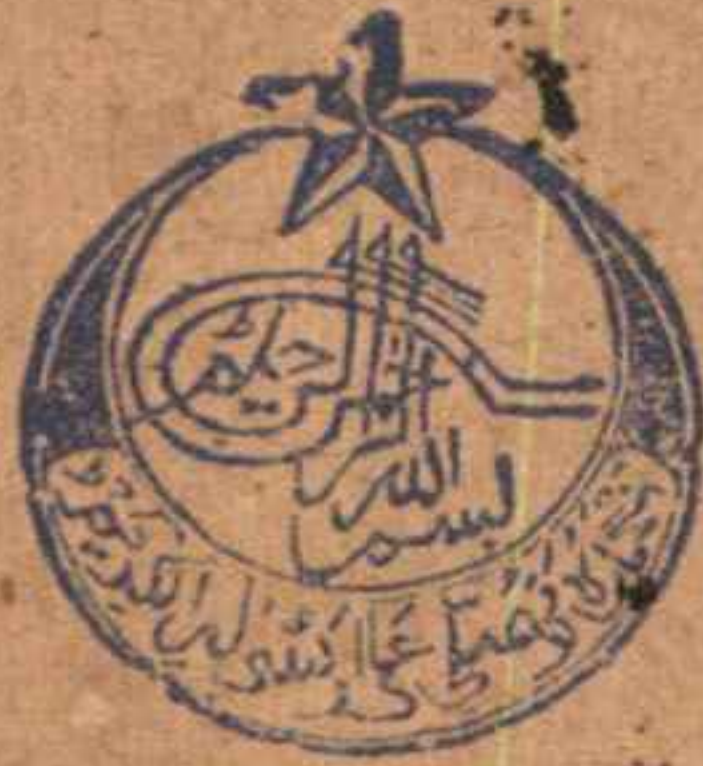 بسم الله الرحمن الرحیم
نحمدہ و نصلی علیٰ رسولہ الکریم